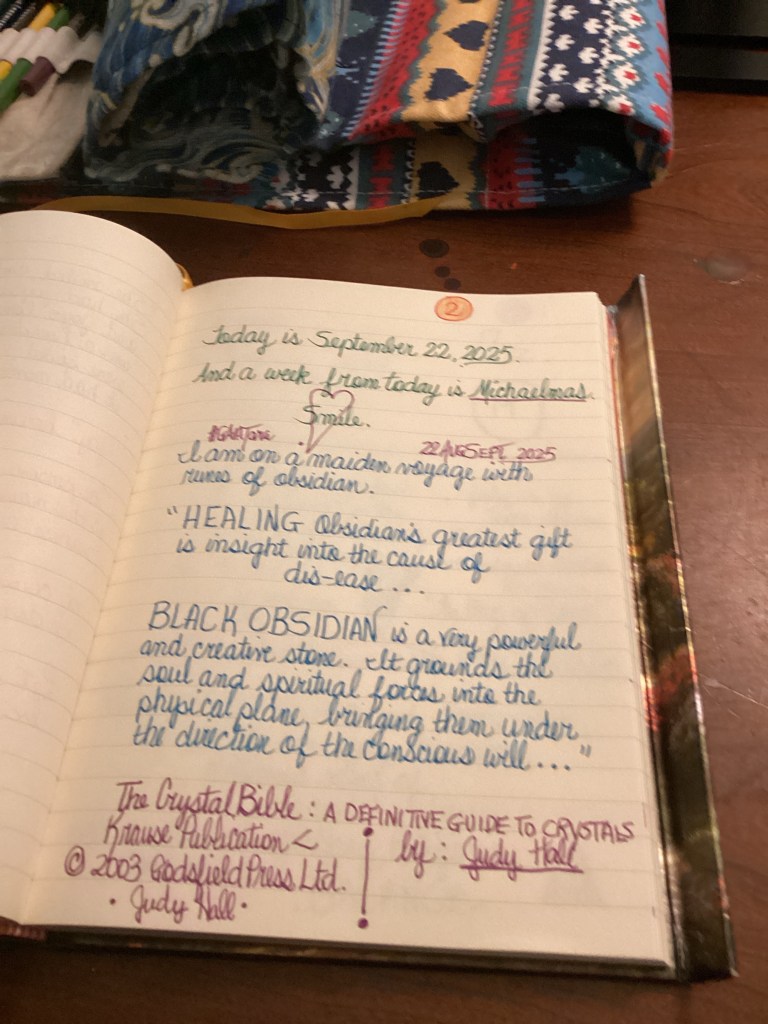 2
Today is September 22, 2025.
And a week from today is Michaelmas.
Smile.
22 AUG SEPT 2025
I am on a maiden voyage with
runes of obsidian.
"HEALING Obsidian's greatest gift
is insight into the cause of
dis-ease...
BLACK OBSIDIAN is a very powerful
and creative stone. It grounds the
soul and spiritual forces into the
physical plane, bringing them under
the direction of the conscious will..."
The Crystal Bible: A DEFINITIVE GUIDE TO CRYSTALS
Krause Publication <
by: Judy Hall
© 2003 Godsfield Press Ltd.
• Judy Hall •